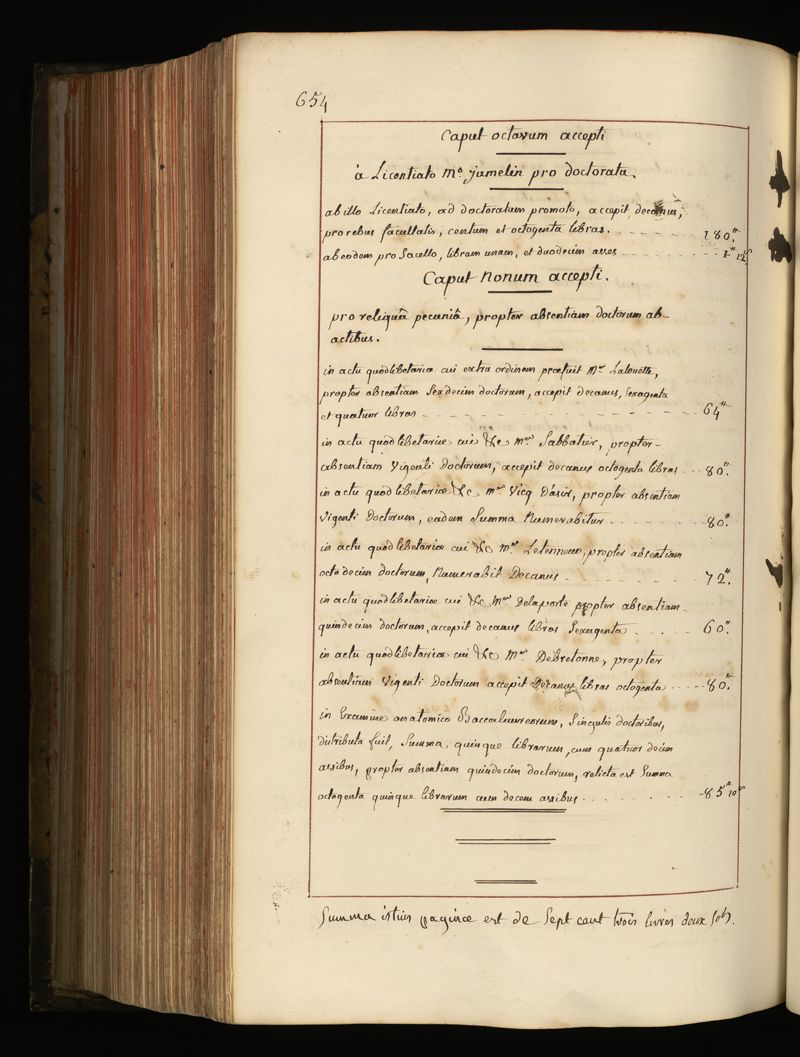 654
Caput octavum accepti
à Licentiato Mo. jumelin pro doctoratu.
ab illo Licentiato, ad doctoratum promoto, accepit decanus,
pro rebus facultatis, centum et octogenta libras. 180."
ab eodem pro Sacello, libram unam, et duodecim asses 1." 12 s
Caput Nonum accepti.
pro reliquâ pecuniâ, propter absentiam doctorum ab-
actibus.
in actu quodlibetariæ cui extra ordinem præfuit Mer. Lalouette,
propter absentiam Sexdecim doctorum, accepit decanus, Sexagenta
et quatuor libras 64."
in actu quodlibetariæ cui &c mer. Sabbatier, propter-
absentiam Vigenti Doctorum, accepit decanus octogenta libras 80."
in actu quodlibetariæ &c mer. Vicq D'asir, propter absentiam
Vigenti Doctorum, eadem Summa Numerabitur 80."
in actu quodlibetariæ cui &c Mer. Letenneur, propter absentiam
octodecim doctorum, Numerabit Decanus 72."
in actu quodlibetariæ cui &c Mer. Delaporte propter absentiam-
quindecim doctorum, accepit decanus libras Sexagenta 60."
in actu quodlibetariæ cui &c Mer. Debretonne, propter
absentiam Vigenti Doctorum accepit Decanus libras octogenta 80."
in Examine anatomico Baccalaureorum, Singulis doctoribus,
distributa fuit, Summa quinque librarum, cum quatuor decim
assibus, propter absentiam quindecim doctorum, relicta est Summa
octogenta quinque librarum cum decem assibus 85." 10 s
Summa istius paginæ est de Sept cent trois livres deux sols.